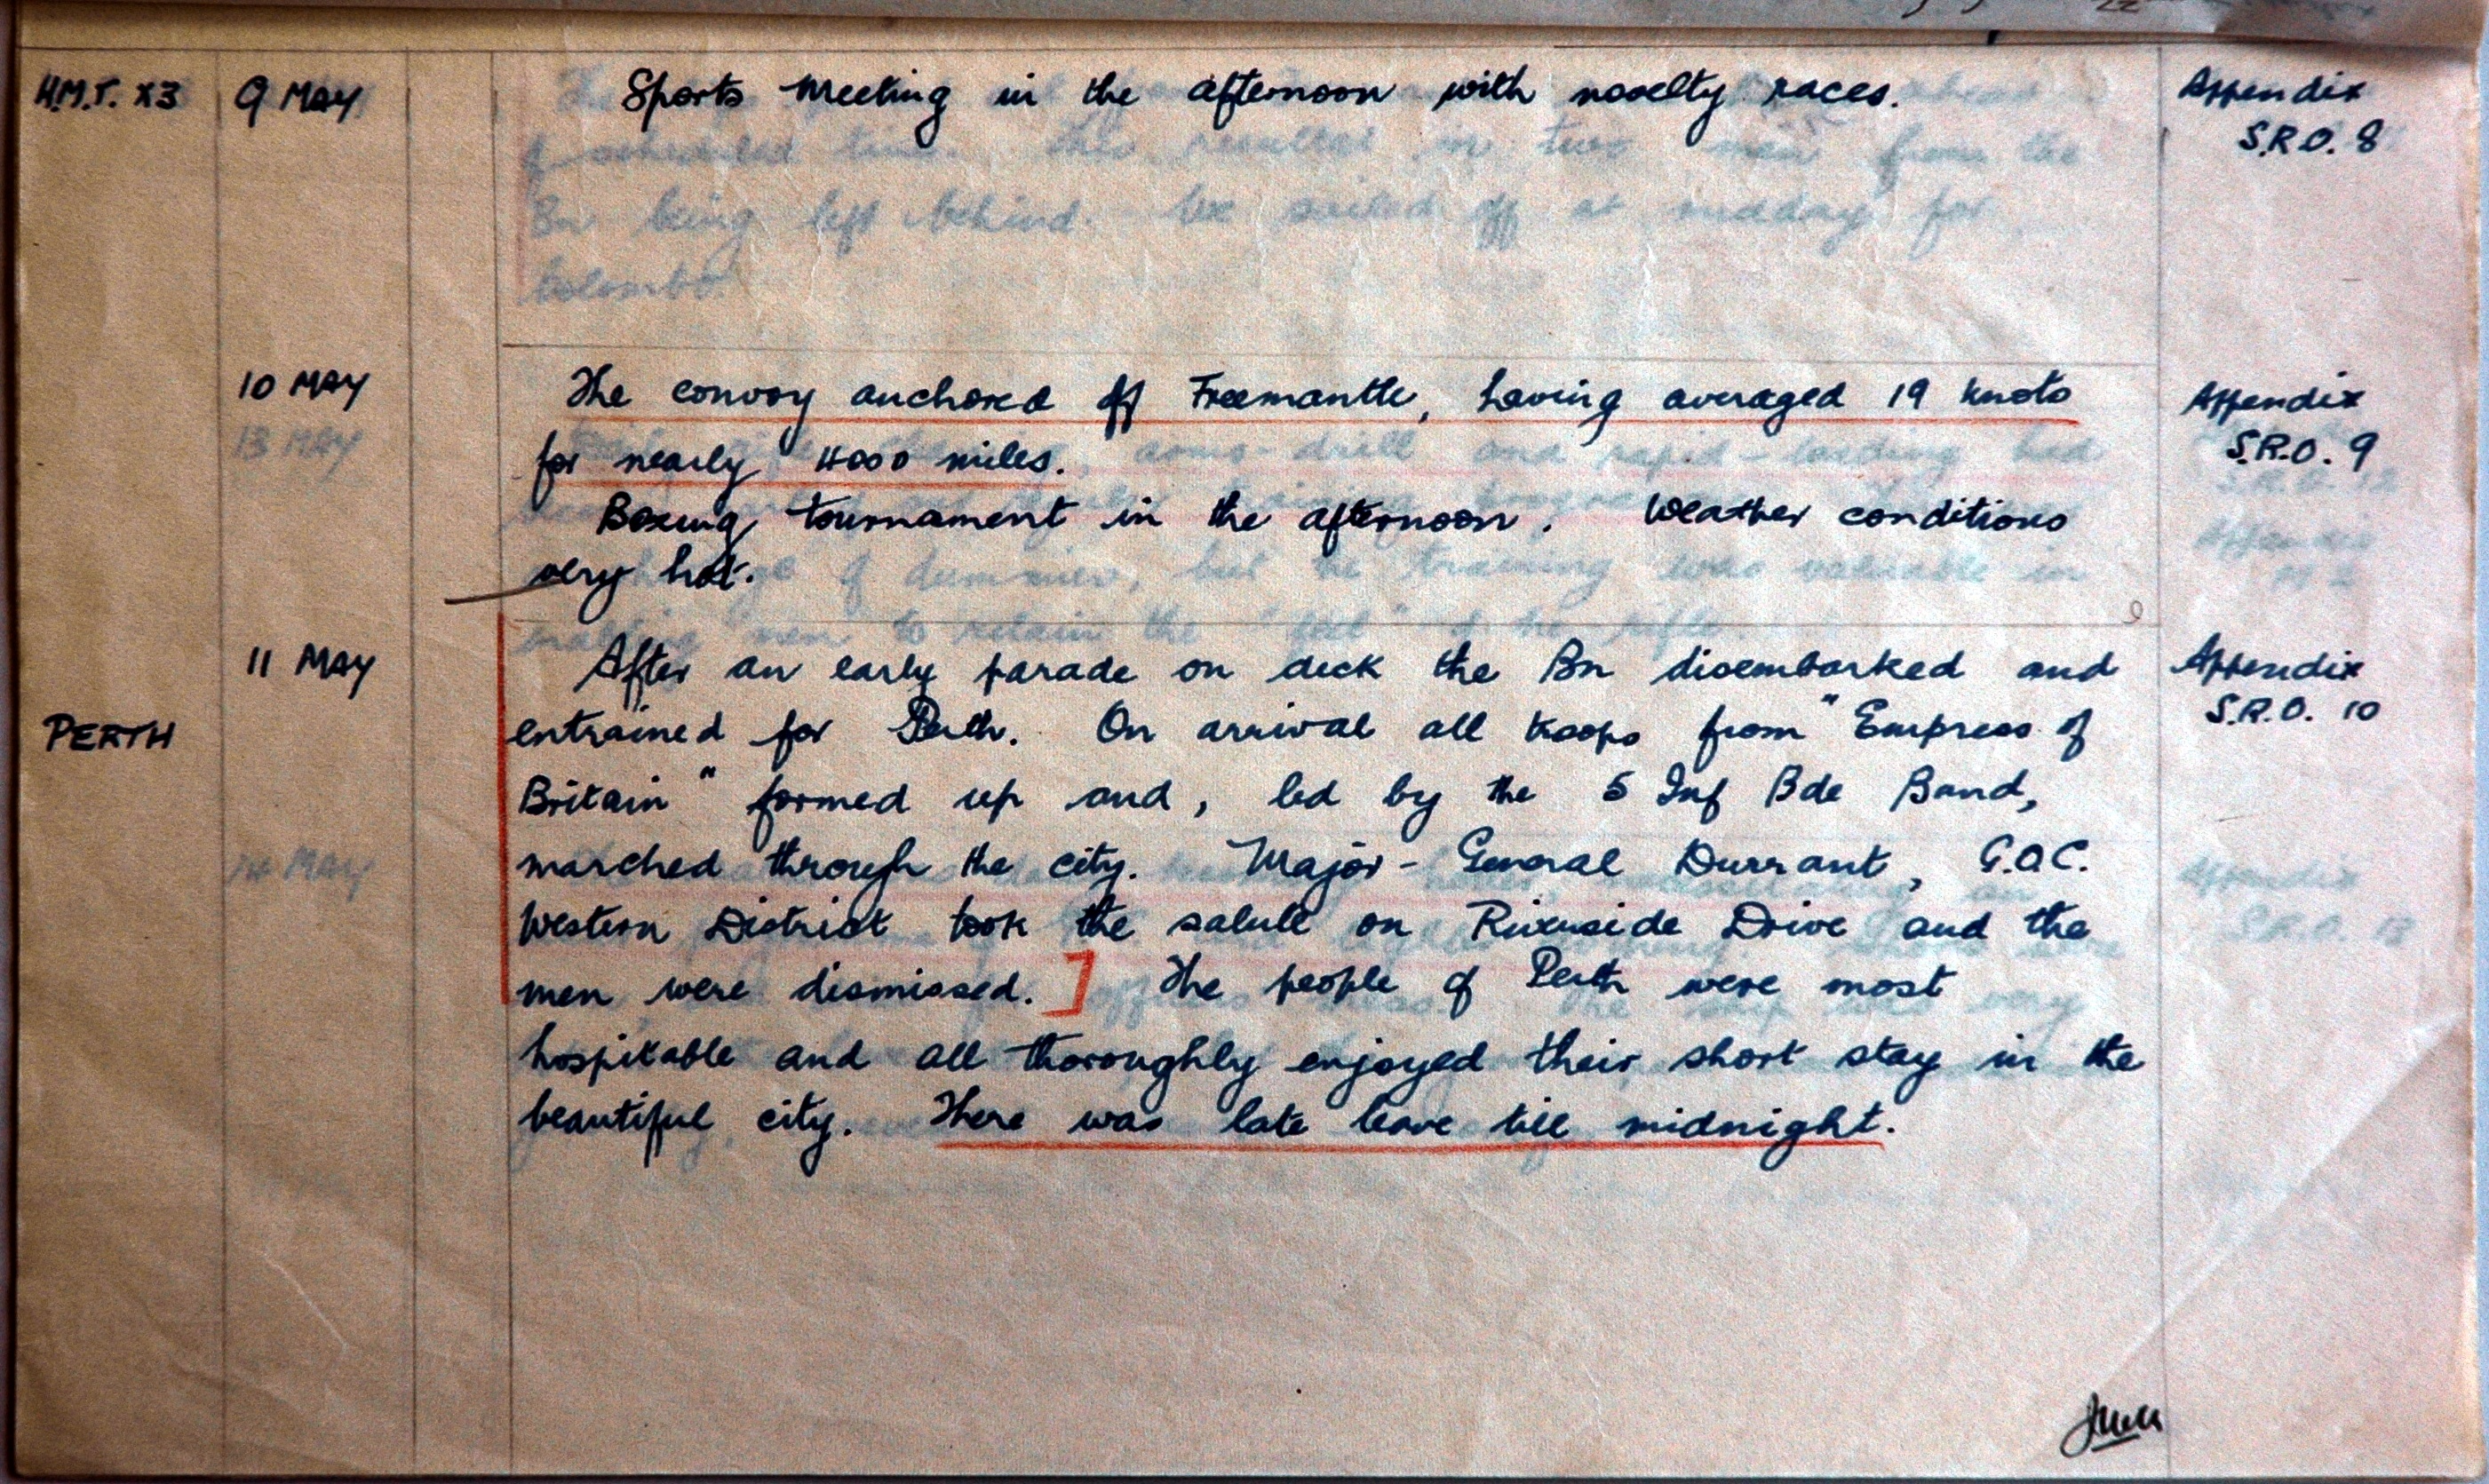 H.M.T. X3 9 MAY Sports Meeting in the afternoon with novelty races. Appendix
S.R.O. 8
10 MAY The convoy anchored off Freemantle, having averaged 19 knots Appendix
for nearly 4000 miles. S.R.O. 9
Boxing tournament in the afternoon. Weather conditions
very hot.
11 MAY After an early parade on deck the Bn disembarked and Appendix
PERTH entrained for Perth. On arrival all troops from "Empress of S.R.O. 10
Britain" formed up and, led by the 5 Inf Bde Band,
marched through the city. Major-General Durrant, G.O.C.
Western District took the salute on Riverside Drive and the
men were dismissed.] The people of Perth were most
hospitable and all thoroughly enjoyed their short stay in the
beautiful city. There was late leave till midnight.